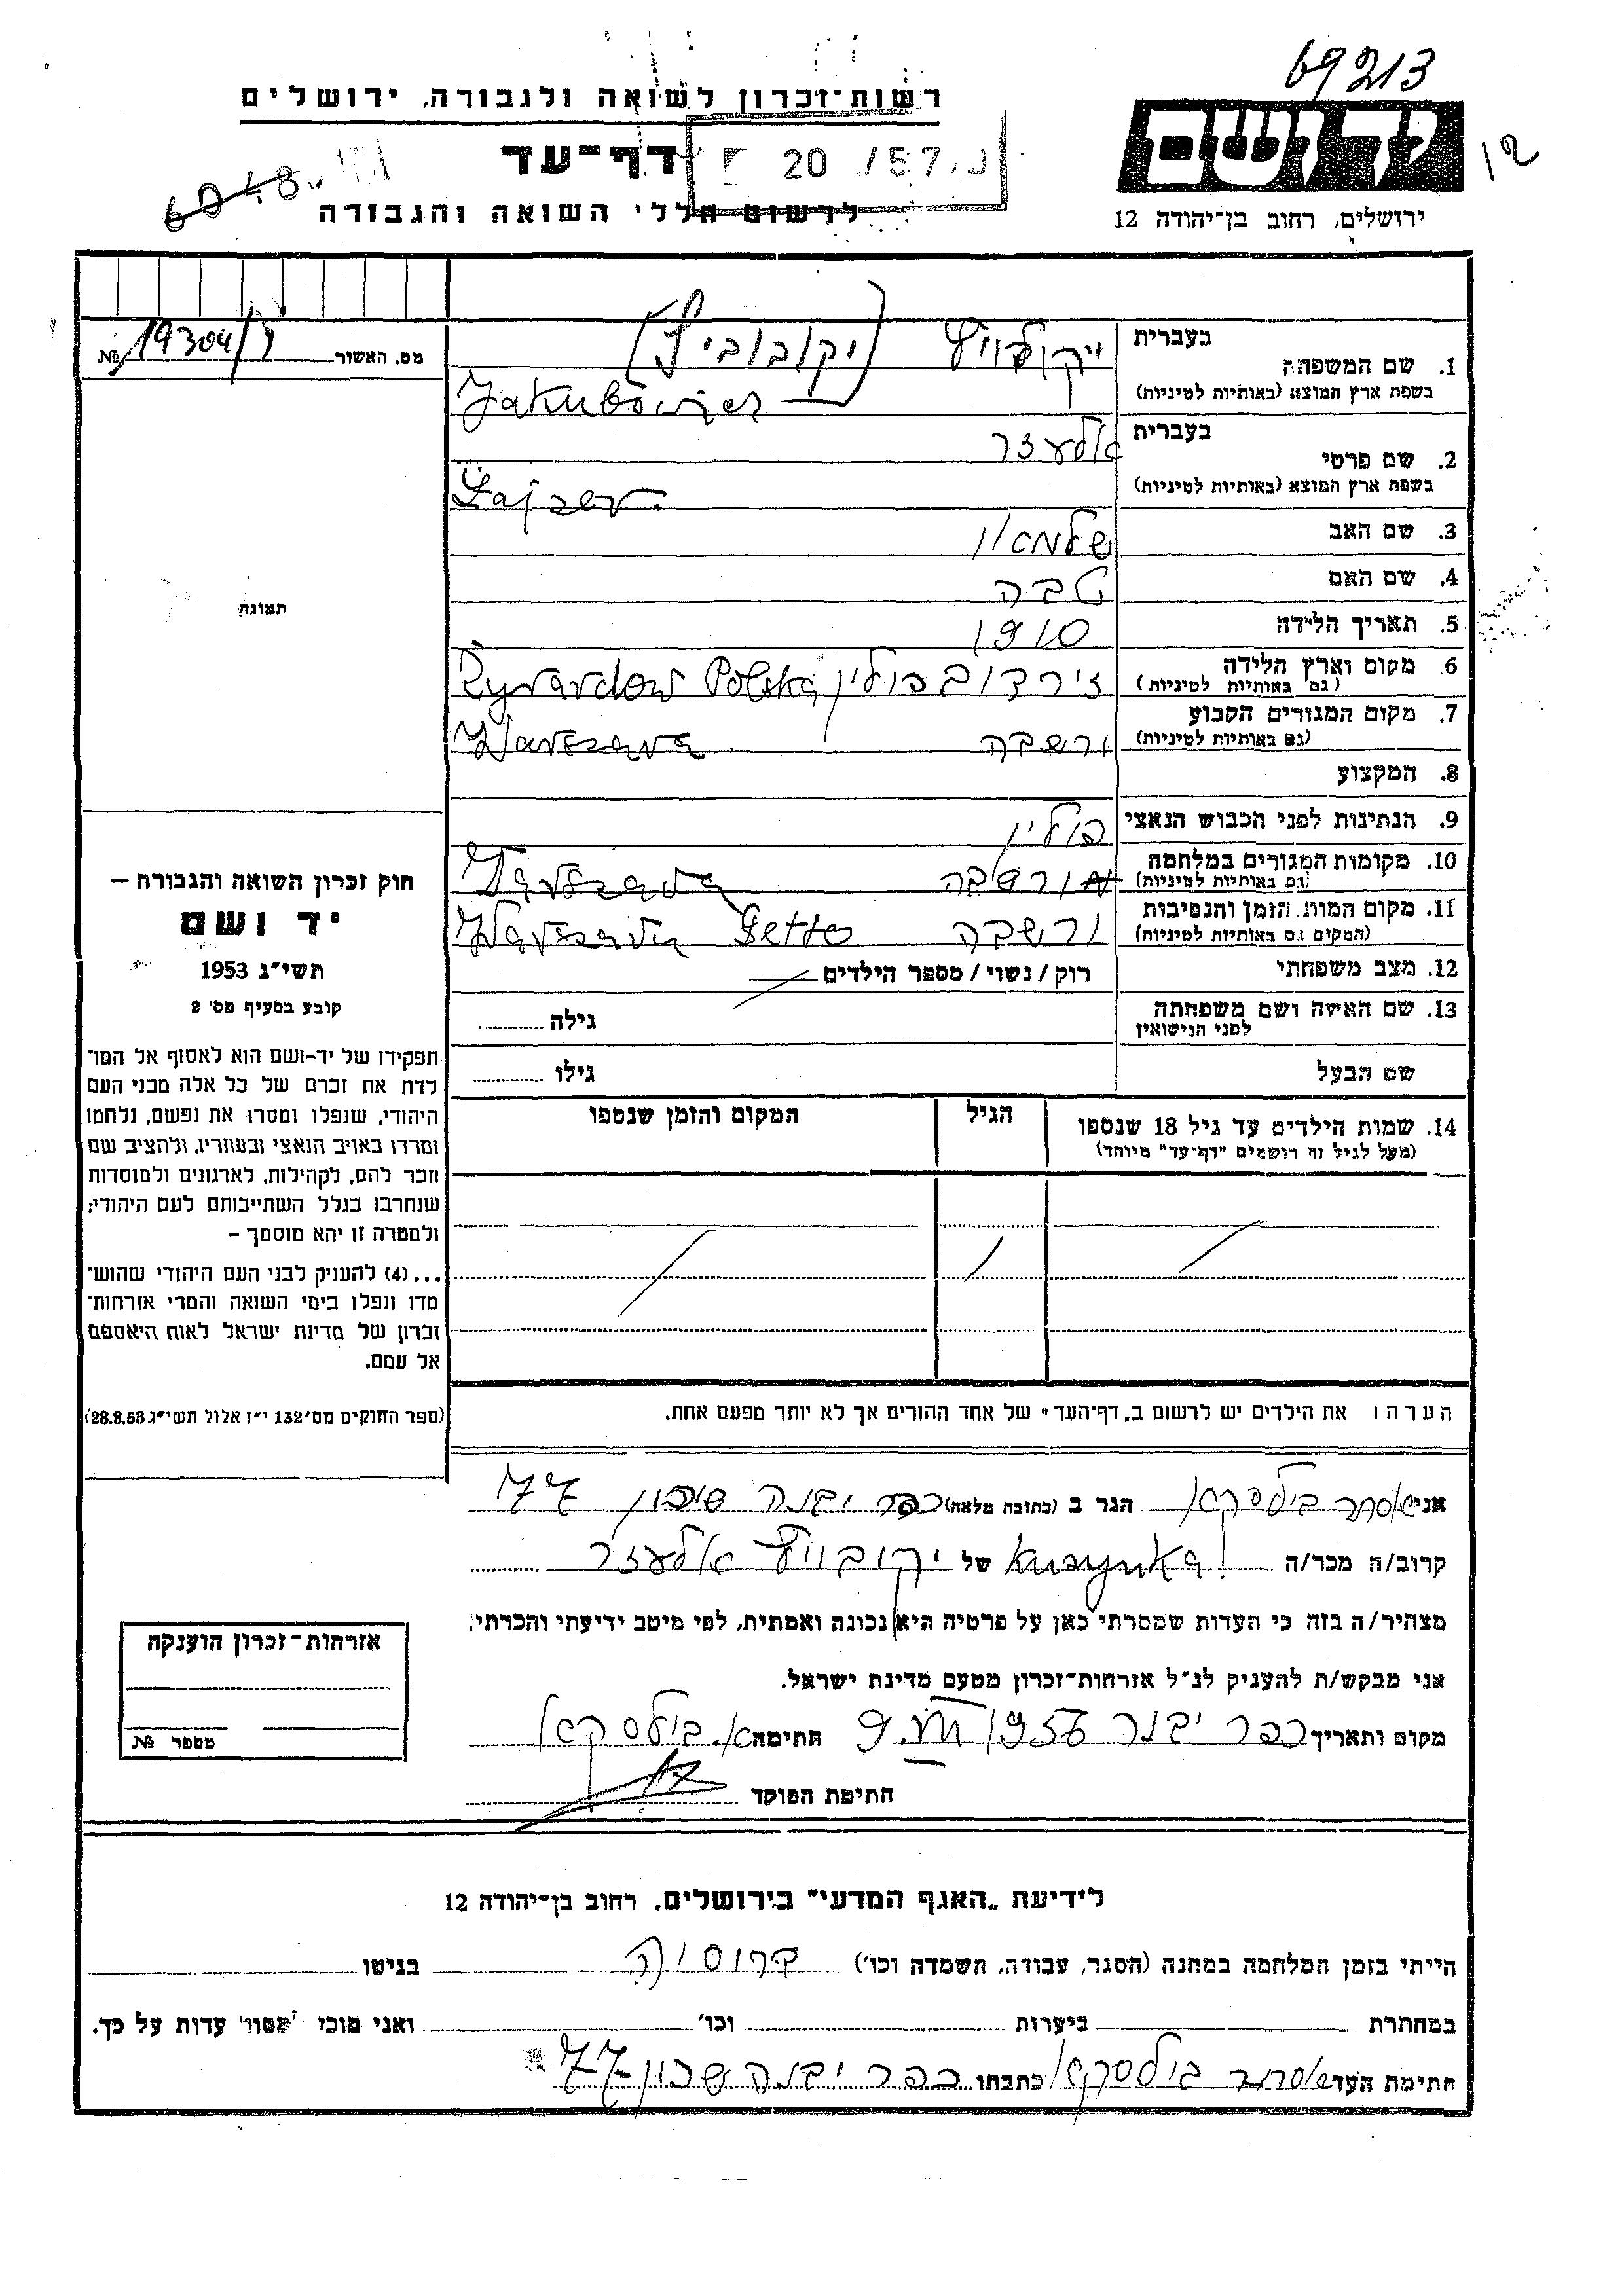 69213
רשות-זכרון לשואה ולגבורה, ירושלים
דף-עד
20 /57
6048
לרשום חללי השואה והגבורה
יד ושם
12
ירושלים, רחוב בן-יהודה 12
מס. האשור 19304/ №
1. שם המשפחה בעברית (יקובוביץ)
בשפת ארץ המוצא (באותיות לטיניות) Jakubowicz
2. שם פרטי בעברית אלעזר
בשפת ארץ המוצא (באותיות לטיניות) Łajzer.
3. שם האב
4. שם האם טבה
5. תאריך הלידה 1910
6. מקום וארץ הלידה (גם באותיות לטיניות) זירדוב פולין Żyrardów Polska
7. מקום המגורים הקבוע (גם באותיות לטיניות) ורשבה Warszawa
8. המקצוע
9. הנתינות לפני הכבוש הנאצי פולין
10. מקומות המגורים במלחמה (גם באותיות לטיניות) ורשבה Warszawa
11. מקום המות, הזמן והנסיבות (המקום גם באותיות לטיניות) ורשבה Warszawa Getto
12. מצב משפחתי רוק / נשוי / מספר הילדים
13. שם האישה ושם משפחתה לפני הנישואין גילה
שם הבעל גילו
14. שמות הילדים עד גיל 18 שנספו הגיל המקום והזמן שנספו
(מעל לגיל זה רושמים "דף-עד" מיוחד)
הערה: את הילדים יש לרשום ב"דף-העד" של אחד ההורים אך לא יותר מפעם אחת.
תמונה
חוק זכרון השואה והגבורה –
יד ושם
תשי"ג 1953
קובע בסעיף מס' 2
תפקידו של יד-ושם הוא לאסוף אל המו־
לדת את זכרם של כל אלה מבני העם
היהודי, שנפלו ומסרו את נפשם, נלחמו
ומרדו באויב הנאצי ובעוזריו, ולהציב שם
וזכר להם, לקהילות, לארגונים ולמוסדות
שנחרבו בגלל השתייכותם לעם היהודי;
ולמטרה זו יהא מוסמך –
...(4) להעניק לבני העם היהודי שהוש־
מדו ונפלו בימי השואה והמרי אזרחות־
זכרון של מדינת ישראל לאות היאספם
אל עמם.
(ספר החוקים מס' 132 י"ז אלול תשי"ג 28.8.53)
אני אסתר בילסקא הגר ב (כתובת מלאה) כפר יבנה שיכון 77
קרוב/ה מכר/ה kuzynka של יקובוויץ אלעזר
מצהיר/ה בזה כי העדות שמסרתי כאן על פרטיה היא נכונה ואמתית, לפי מיטב ידיעתי והכרתי.
אני מבקש/ת להעניק לנ"ל אזרחות-זכרון מטעם מדינת ישראל.
מקום ותאריך כפר יבנה 1956 חתימה א. בילסקא
חתימת הפוקד
אזרחות-זכרון הוענקה
מספר №
לידיעת "האגף המדעי" בירושלים, רחוב בן-יהודה 12
הייתי בזמן המלחמה במחנה (הסגר, עבודה, השמדה וכו') ברוסיה בגיטו
במחתרת ביערות וכו' ואני מוכן למסור עדות על כך.
חתימת העד אסתר בילסקא כתבתו כפר יבנה שכון 77